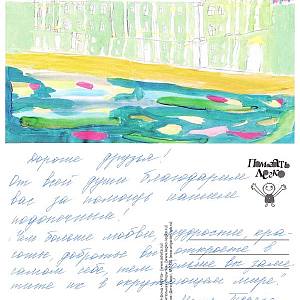 Помогать
легко
Дорогие друзья!
От всей души благодарим
вас за помощь нашим
подопечным!
"Чем больше любви, мудрости, кра-
соты, доброты вы откроете в
самом себе, тем больше вы заме-
тите их в окружающем мире."